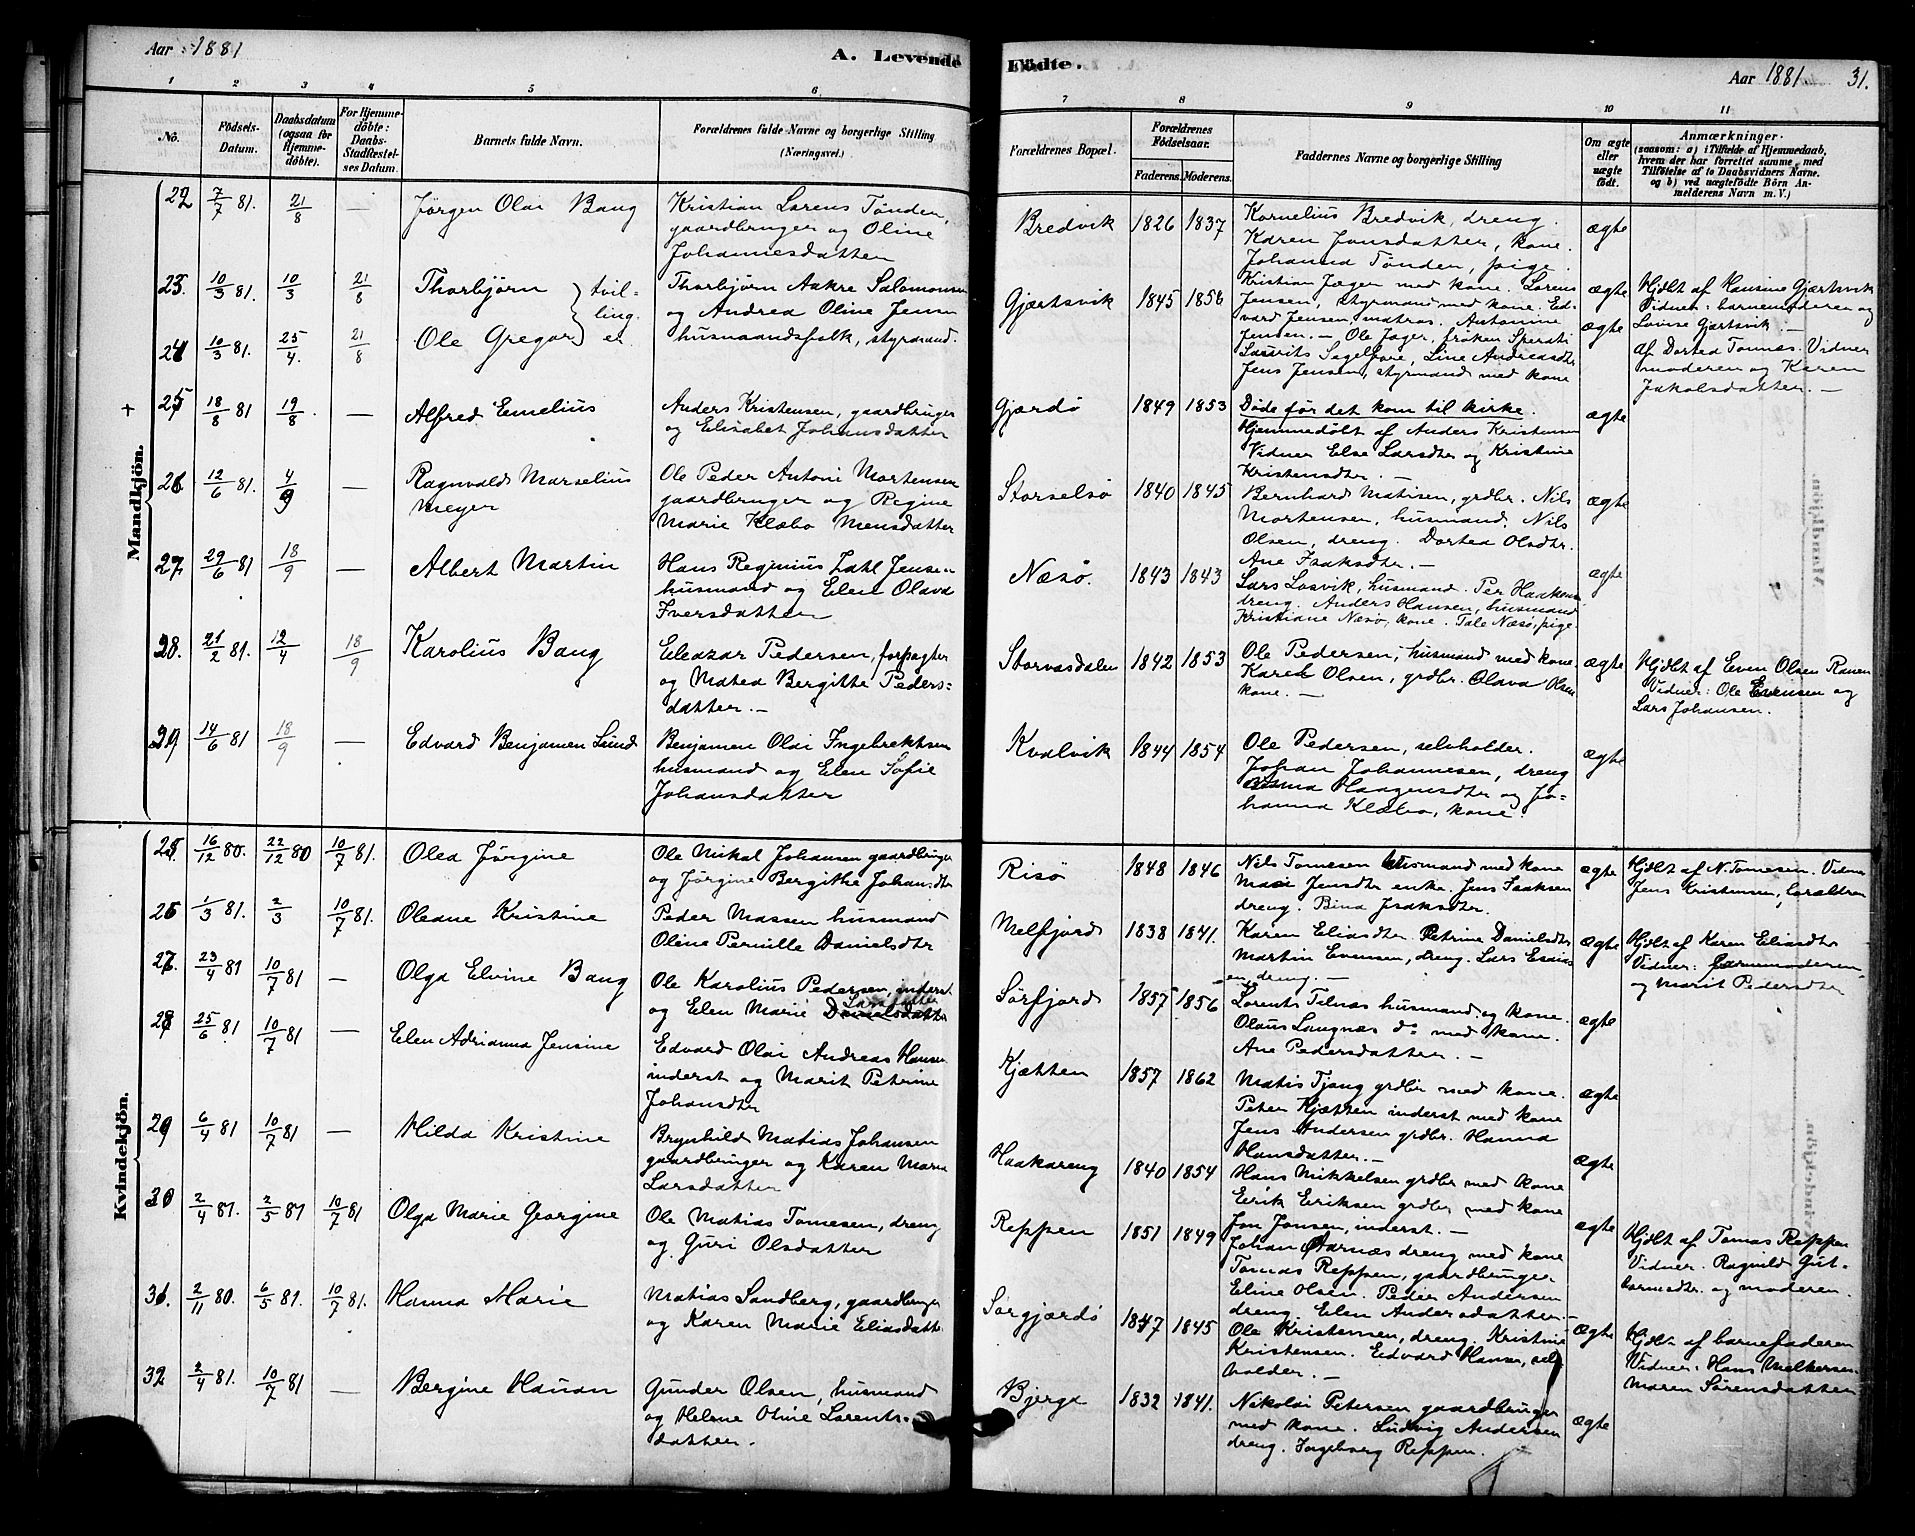 Aar 1881
A. Levende
1 2 3 4 5 6
No.
Födsels-Datum.
Daabsdatum (ogsaa for Hjemmedöbte).
For Hjemmedöbte: Daabs-Stadfæstelses Datum.
Barnets fulde Navn.
Forældrenes fulde Navne og borgerlige Stilling
(Næringsvei.)
Mandkjön.
22. 7/7 81. 21/8 — Jørgen Olai Bang
Kristian Lorens Tønden,
gaardbruger og Oline
Johannesdatter
23. 10/3 81. 10/3 21/8 Thorbjørn } tvil-
Thorbjørn Aakre Salomonsen
og Andrea Oline Jensen
ling.
24 10/3 81. 25/4. 21/8 Ole Gregor } er.
husmandsfolk, styrmand.
+ 25 18/8 81 19/8. — Alfred Emelius
Anders Kristensen, gaardbruger
og Elisabet Johansdatter
26 12/6 81. 4/9 — Ragnvald Marselius
Meyer
Ole Peder Antoni Mortensen
gaardbruger og Regine
Marie Klæbo Monsdatter
27. 29/6 81 18/9 — Albert Martin
Hans Reginius Zahl Jensen
husmand og Elen Olava
Iversdatter
28. 21/2 81. 12/4 18/9 Karolius Bang
Eleazar Pedersen, forpagter
og Matea Bergitte Peders-
datter. —
29 14/6 81 18/9 — Edvard Benjamen Lund
Benjamen Olai Ingebrektsen
husmand og Elen Sofie
Johansdatter
Kvindekjön.
25. 16/12 80. 22/12 80 10/7 81. Olea Jørgine
Ole Mikal Johansen gaardbruger
og Jørgine Bergithe Johansdtr
26 1/3 81. 2/3 10/7 81. Oleane Kristine
Peder Massen husmand
Oline Pernille Danielsdtr
27. 23/4 81 10/7 81 — Olga Elvine Bang
Ole Karolius Pedersen, inderst
og Elen Marie Danielsdatter
28 25/6 81 10/7 81 — Elen Adrianna Jensine
Edvard Olai Andreas Hansen
inderst og Marit Petrine
Johansdtr
29 6/4 81 10/7 81 — Hilda Kristine
Brynhild Matias Johansen
gaardbruger og Karen Marie
Larsdatter
30 2/4 81. 2/5 81 10/7 81 Olga Marie Georgine
Ole Matias Tomesen, dreng
og Guri Olsdatter
31. 2/11 80. 6/5 81. 10/7 81. Hanna Marie
Matias Sandberg, gaardbruger
og Karen Marie Eliasdatter
32. 2/4 81. 10/7 81 — Bergine Hauan
Gunder Olsen, husmand
og Helene Oline Lorents-
datter.
Födte.
Aar 1881. 31.
7 8 9 10 11
Forældrenes Bopæl.
Forældrenes Födselsaar.
Faderens. Moderens.
Faddernes Navne og borgerlige Stilling
Om ægte eller uægte födt.
Anmærkninger.
(saasom: a) i Tilfælde af Hjemmedaab, hvem der har forrettet samme, med Tilföielse af to Daabsvidners Navne. og b) ved uægtefödte Börn Anmelderens Navn m. V.)
Bredvik 1826 1837
Kornelius Bredvik, dreng.
Karen Jonsdatter, kone.
Johanna Tønden, pige.
ægte
Gjærtsvik 1845 1856
Kristian Jæger med kone. Lorens
Jensen, Styrmand med kone. Ed-
vard Jensen, matros. Antonine
Jensen. — Ole Jager, frøken Sperati
Lauritz Segelfore, Line Andreasdtr
Jens Jensen, styrmand med kone
ægte
ægte
Hjdbt af Hansine Gjærtsvik
Vidner: barnemoderen og
Lovise Gjærtsvik. —
af Dortea Tomas. Vidner
moderen og Karen
Jakobsdatter. —
Gjærdø 1849 1853
Døde før det kom til kirke.
Hjemmedøbt af Anders Kristensen
Vidner Else Larsdtr og Kristine
Kristensdtr. —
ægte
Storselsø 1840 1845
Bernhard Matisen, grdbr. Nils
Mortensen, husmand. Nils
Olsen, dreng. Dortea Olsdtr.
Ane Isaksdtr. —
ægte
Næsø. 1843 1843
Lars Losvik, husmand. Per Haakons
dreng. Anders Hansen, husmand
Kristiane Næsø, kone. Tale Næsø, pige
ægte
Storvasdalen 1842 1853
Ole Pedersen, husmand med kone.
Karel Olsen, grdbr. Olava Olsen
kone. —
ægte
Hjdbt af Even Olsen Ranen
Vidner: Ole Evensen og
Lars Johansen.
Kvalvik 1844 1854
Ole Pedersen, selvholder.
Johan Johannesen, dreng
Anna Haagensdtr og Jo-
hanna Klæbo, kone.
ægte
Risø 1848 1846
Nils Tomesen husmand med kone
Mari Jensdtr enke. Jens Isaksen
dreng. Bina Isaksdtr.
ægte
Hjdbt af N. Tomesen. Vidner
Jens Kristensen, forældren
Melfjord 1838 1841.
Karen Eliasdtr. Petrine Danielsdtr
Martin Evensen, dreng. Lars Esaias
en, dreng. —
ægte
Hjdbt af Karen Eliasdtr
Vidner: barnemoderen
og Marit Pedersdtr
Sørfjord 1857 1856
Lorents Telnæs husmand og kone.
Olaus Langnæs do med kone.
Ane Pedersdatter. —
ægte
Kjætten 1857 1862
Matis Tjong grdbr med kone.
Peter Kjætten inderst med kone
Jens Andersen grdbr. Hanna
Hansdatter. —
ægte
Haakareng 1840 1854
Hans Mikkelsen grdbr med kone
Eirik Eiriksen grdbr med kone
Jon Jonsen, inderst. —
ægte
Reppen 1851 1849
Johan Aarnæs dreng med kone
Tomas Reppen, gaardbruger
Eline Olsen. Peder Andersen
dreng. Elen Andersdatter. —
ægte
Hjdbt af Tomas Reppen
Vidner. Ragnild Gut-
tormsdtr. og moderen.
Sørgjærdø 1847 1845
Ole Kristensen, dreng. Kristine
Kristensen. Edvard Hansen, selv
holder. —
ægte
Hjdbt af barnefaderen
Vidner: Hans Melkersen
Maren Sørensdatter
Bjerga 1832 1841.
Nikolai Petersen gaardbruger
med kone. Ludvig Andersen
dreng. Ingeborg Reppen.
ægte